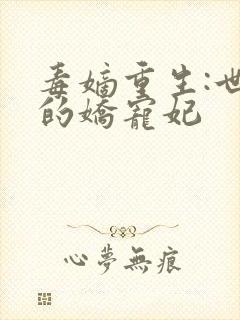 毒嫡重生:世
的嬌寵妃
心夢無痕